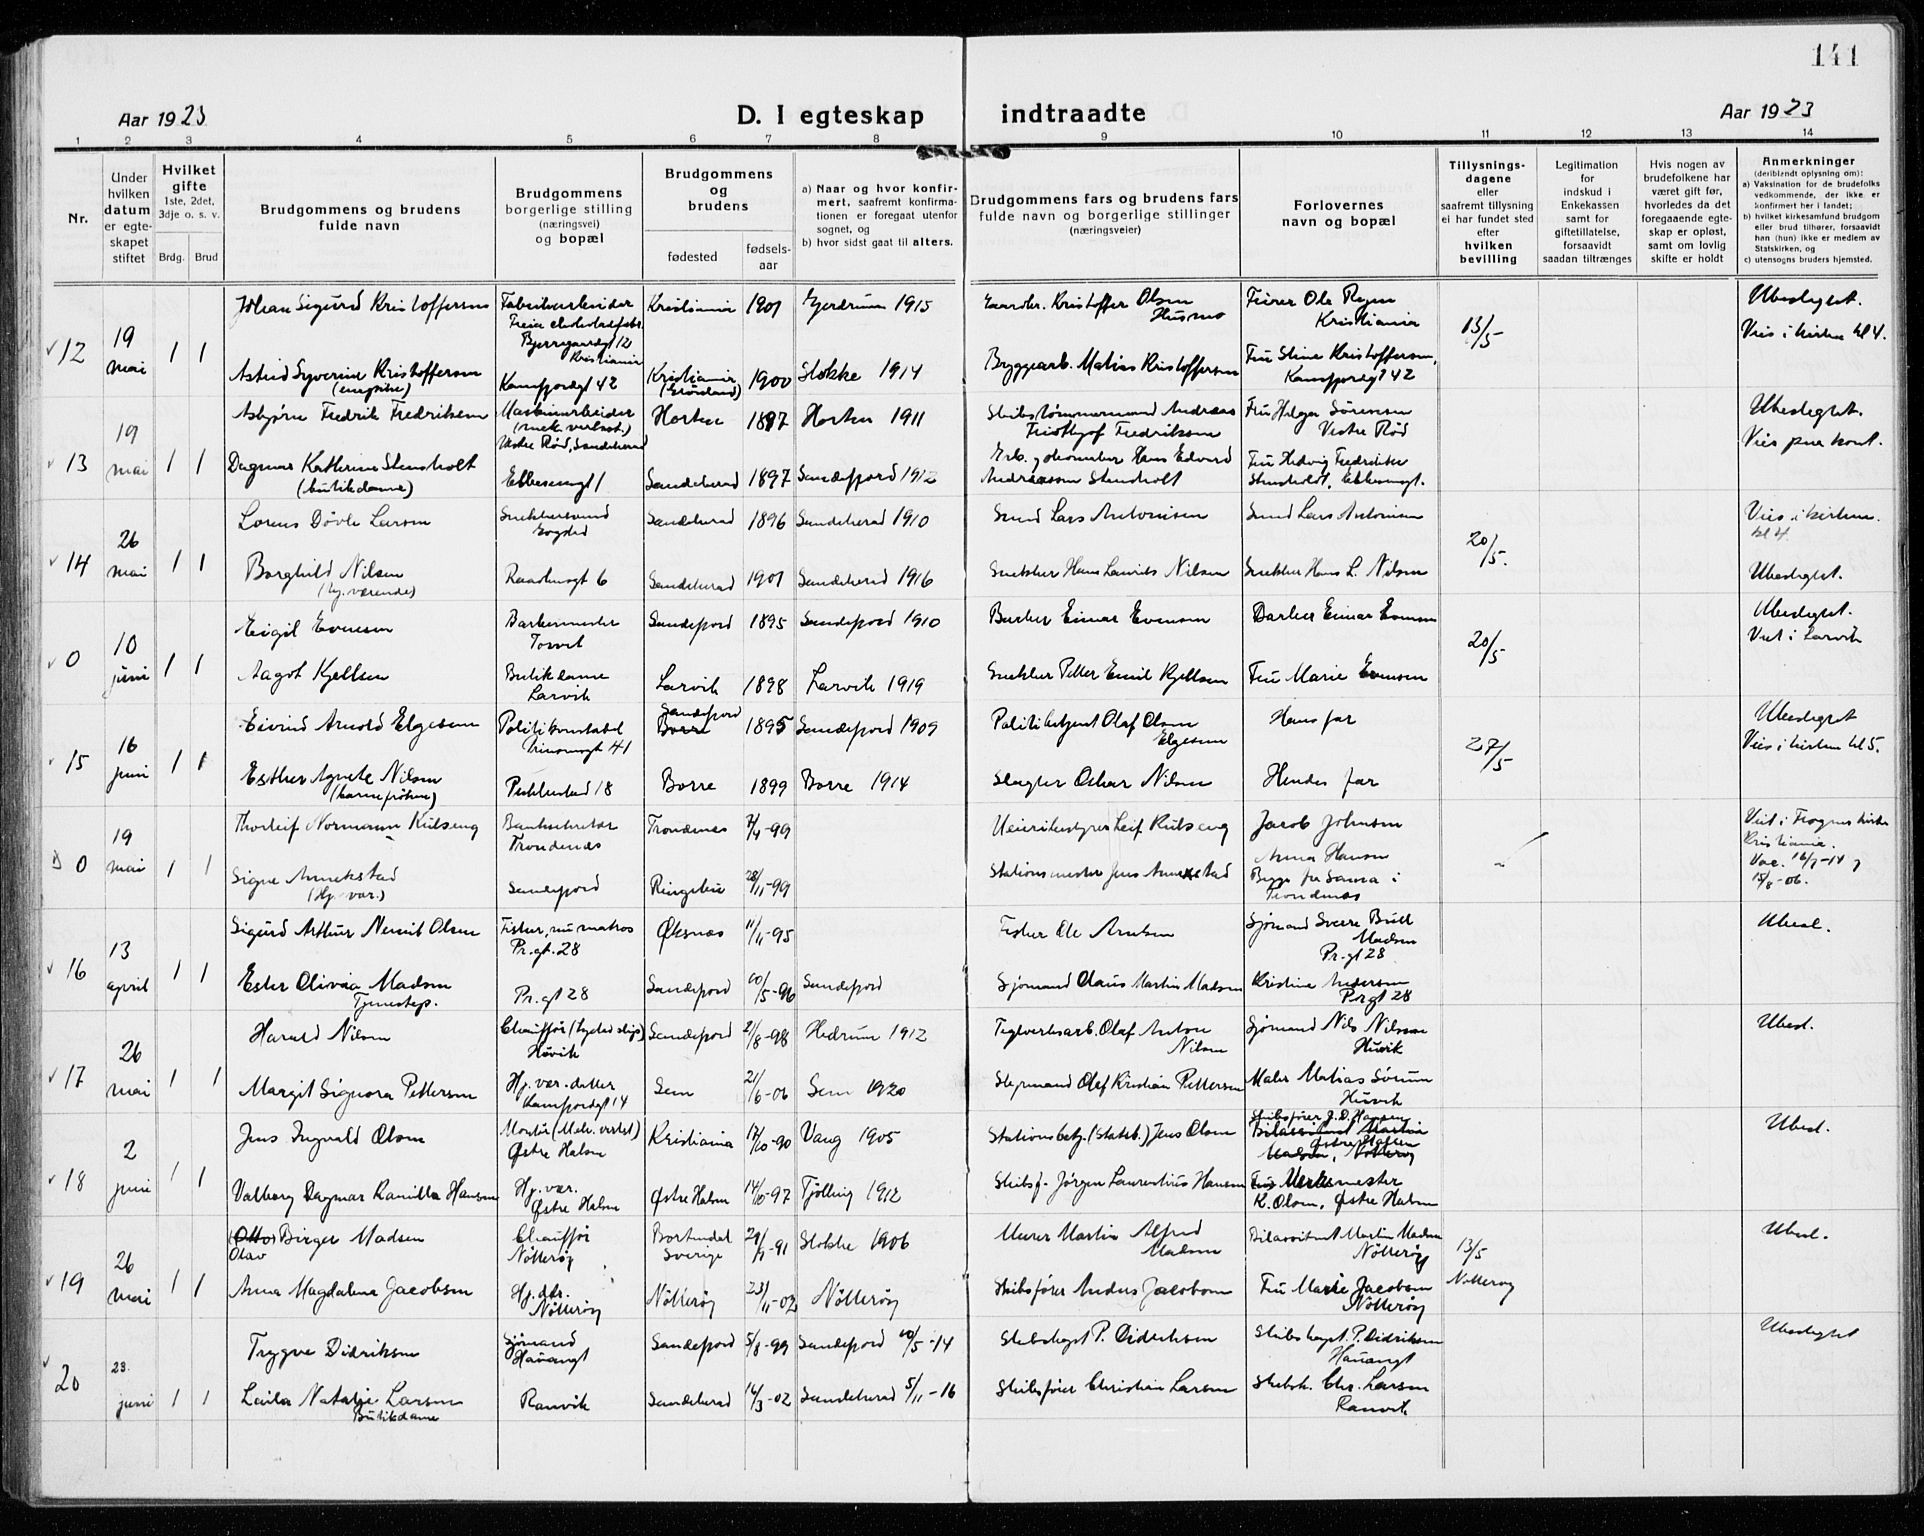 141
Aar 1923
D. I egteskap indtraadte
Aar 1923
1 2 3 4 5 6 7 8 9 10 11 12 13 14
Nr.
Under hvilken datum er egteskapet stiftet
Hvilket gifte
1ste, 2det, 3dje o. s. v.
Brdg. Brud
Brudgommens og brudens fulde navn
Brudgommens borgerlige stilling (næringsvei) og bopæl
Brudgommens og brudens
fødested
fødsels-aar
a) Naar og hvor konfirmert, saafremt konfirmationen er foregaat utenfor sognet, og
b) hvor sidst gaat til alters.
Brudgommens fars og brudens fars fulde navn og borgerlige stillinger (næringsveier)
Forlovernes navn og bopæl
Tillysningsdagene eller saafremt tillysning ei har fundet sted efter hvilken bevilling
Legitimation for indskud i Enkekassen samt for giftetillatelse, forsaavidt saadan tiltrænges
Hvis nogen av brudefolkene har været gift før, hvorledes da det foregaaende egteskap er opløst, samt om lovlig skifte er holdt
Anmerkninger
(deriblandt oplysning om):
a) Vaksination for de brudefolks vedkommende, der ikke er konfirmert her i landet;
b) hvilket kirkesamfund brudgom eller brud tilhører, forsaavidt han (hun) ikke er medlem av Statskirken, og
c) utensogns bruders hjemsted.
12 19 mai 1 1
Johan Sigurd Kristoffersen Fabrikarbeider Kristiania 1901 Gjerdrum 1915 Kristoffer Olsen Husmo Kristiania 13/5 Ubeslegtet.
Bjerregaardsgt 12 Kristiania
Vies i kirken kl 4.
Astrid Syverine Kristoffersen Kamfjordgt 42 Kristiania 1900 Stokke 1914 Byggearb. Matias Kristoffersen Fru Stine Kristoffersen, Kamfjordgt 42
13 19 mai 1 1
Asbjørn Fredrik Fredriksen Maskinarbeider (mek. verksted) Vestre Rød, Sandeherad Horten 1897 Horten 1911 Skibstømmermand Andreas Fridthjof Fredriksen Fru Helga Sørensen Vestre Rød Ubeslegtet.
Dagmar Kathrine Stensholt (butikdame) Ebbesensgt 1 Sandeherad 1897 Sandefjord 1912 Hans Edvard Andreassen Stensholt Fru Hedvig Fredrikke Stensholdt, Ebbesensgt.
14 26 mai 1 1
Lorens Døvle Larsen Snekkersvend Sandeherad 1896 Sandeherad 1910 Smed Lars Antonisen Smed Lars Antonisen 20/5. Vies i kirken kl 4.
Borghild Nilsen (hj. værende) 6 Sandeherad 1901 Sandeherad 1916 Snekker Hans Laurits Nilsen Snekker Hans L. Nilsen Ubeslegtet.
0 10 juni 1 1
Eigil Evensen Barbermester Torvet Sandefjord 1895 Sandefjord 1910 Barber Einar Evensen Barber Einar Evensen 20/5 Ubeslegtet.
Viet i Larvik
Aagot Kjellsen Butikdame Larvik Larvik 1898 Larvik 1919 Snekker Petter Emil Kjellsen Fru Marie Evensen
15 16 juni 1 1
Eivind Arnold Elgesem Politikonstabel 41 Sandefjord Borre 1895 Sandefjord 1909 Politibetjent Olaf Olsen Elgesem Hans far 27/5 Ubeslegtet
Vies i kirken kl 5.
Esther Agnete Nilsen 18 Borre 1899 Borre 1914 Slagter Oskar Nilsen Hendes far
0 19 mai 1 1
Thorleif Normann Kulseng Banksekretær Trondenes Trondenes 7/4-99 Leif Kulseng Jacob Johnsen Viet i Frogner kirke Kristiania.
Signe Annekstad (Hj. vær.) Sandefjord Ringebu 28/11-99 Stationsmester Jens Annekstad Anna Hansen Vac. 16/7-14 og 15/8-06.
16 13 april 1 1
Sigurd Arthur Olsen Fisker, nu matros Pr.gt. 28 Øksnes 11/11-95 Fisker Ole Sjømand Sverre Madsen Pr.gt 28 Ubesl.
Ester Olivia Madsen Tjenestep. Pr.gt 28 Sandefjord 10/5-96 Sandefjord Sjømand Claus Martin Madsen Kristine Andersen Pr.gt 28
17 26 mai 1 1
Harald Nilsen Chauffør Sandefjord 21/8-98 Hedrum 1912 Teglverksarb. Olaf Anton Nilsen Sjømand Nils Nilsen Husvik Ubesl.
Margit Signora Pettersen Hj. vær. datter Kamfjordgt 14 Sem 21/6-01 Sem 1920 Styrmand Olaf Kristian Pettersen Maler Matias Sørum Husvik
18 2 juni 1 1
Jens Ingvald Olsen Montør (Mek. verkst.) Østre Halsen Kristiania 17/10-90 Vang 1905 Stationsbetj. (Statsb.) Jens Olsen Skibsfører J. D. Hansen Østre Halsen Ubesl.
Valborg Dagmar Kamilla Hansen Hj. vær. Østre Halsen Østre Halsen 14/10-97 Tjølling 1912 Skibsf. Jørgen Laurentius Hansen Verksmester K. Olsen, Østre Halsen
19 26 mai 1 1
(Otto) Olav Birger Madsen Chauffør Nøtterøy Sverige 29/9-91 Stokke 1906 Murer Martin Alfred Madsen Martin Madsen Nøtterøy 13/5 Nøtterøy Ubesl.
Anna Magdalena Jacobsen Hj. dtr. Nøtterøy Nøtterøy 23/11-02 Nøtterøy Skibsfører Anders Jacobsen Fru Marie Jacobsen Nøtterøy
20 23. juni 1 1
Trygve Didriksen Sjømand Sandefjord 5/8-99 Sandefjord 10/5-14 Skibskapt P. Diderksen Skibskapt. P. Didriksen Ubeslegtet
Laila Natalie Larsen Butikdame Ranvik Sandeherad 16/3-02 Sandeherad 5/11-16 Skibsfører Christian Larsen Skibsk. Chr. Larsen Ranvik